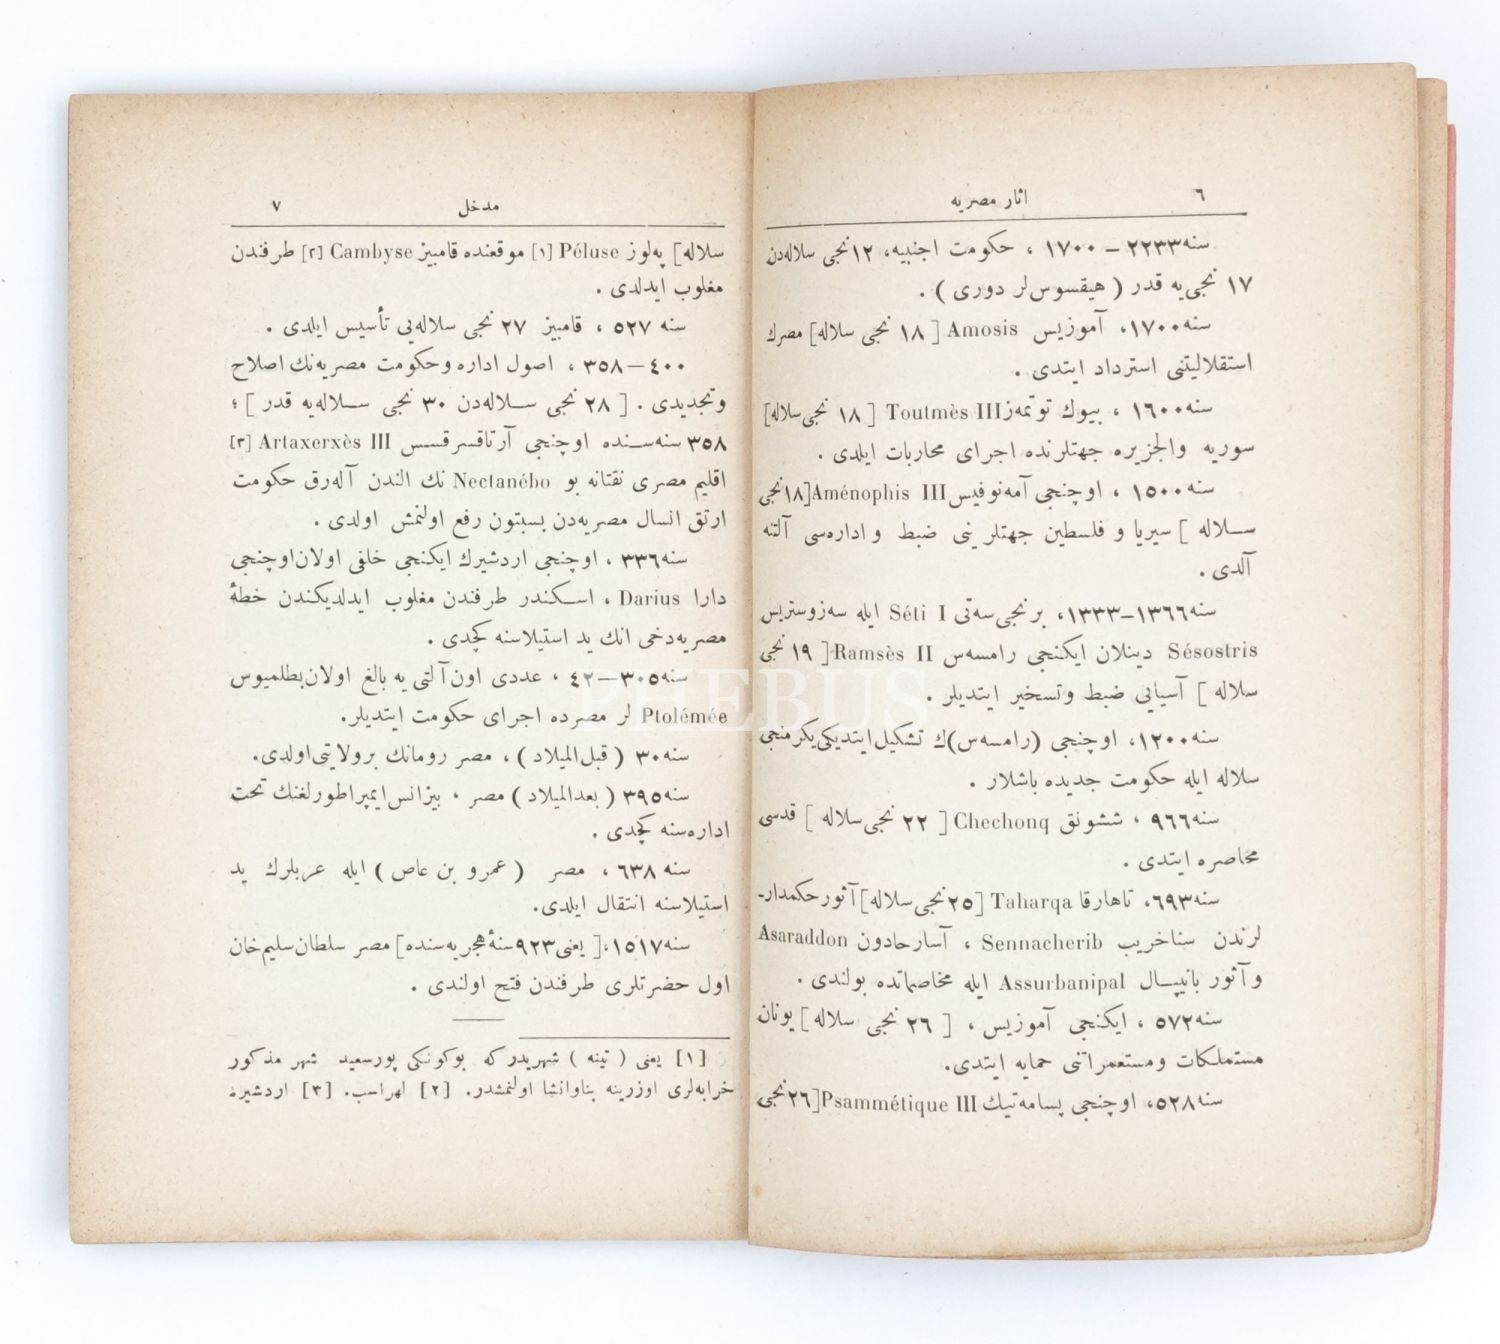 ٦ اثار مصریه
سنه ٢٢٣٣ – ١٧٠٠ ، حکومت اجنبیه، ١٢ نجی سلاله‌دن
١٧ نجی‌یه قدر ( هیقسوس‌لر دوری ) .
سنه ١٧٠٠، آموزیس Amosis [ ١٨ نجی سلاله ] مصرك
استقلالیتنی استرداد ایتدی .
سنه ١٦٠٠ ، بیوك توتمه‌ز Toutmès III [ ١٨ نجی سلاله ]
سوریه والجزیره جهتلرنده اجرای محاربات ایلدی .
سنه ١٥٠٠ ، اوچنجی آمه‌نوفیس Aménophis III [ ١٨ نجی
سلاله ] سیریا و فلسطین جهتلرینی ضبط و اداره‌سی آلتنه
آلدی .
سنه ١٣٦٦–١٣٣٣، برنجی سه‌تی Séti I ایله سه‌زوستریس
Sésostris دینلان ایکنجی رامسه‌س Ramsès II [ ١٩ نجی
سلاله ] آسیایی ضبط وتسخیر ایتدیلر .
سنه ١٢٠٠، اوچنجی (رامسه‌س)ك تشکیل ایتدیکی یکرمنجی
سلاله ایله حکومت جدیده باشلار .
سنه ٩٦٦ ، ششونق Chechonq [ ٢٢ نجی سلاله ] قدسی
محاصره ایتدی .
سنه ٦٩٣، تاهارقا Taharqa [٢٥ نجی سلاله] آثور حکمدار-
لرندن سناخریب Sennacherib ، آسارحادون Asaraddon
و آثور بانیپال Assurbanipal ایله مخاصماتده بولندی .
سنه ٥٧٢ ، ایکنجی آموزیس ، [ ٢٦ نجی سلاله ] یونان
مستملکات ومستعمراتنی حمایه ایتدی.
سنه ٥٢٨، اوچنجی پسامه‌تیك Psammétique III [٢٦ نجی
مدخل ٧
سلاله] په‌لوز Péluse [١] موقعنده قامبیز Cambyse [٢] طرفندن
مغلوب ایدلدی .
سنه ٥٢٧ ، قامبیز ٢٧ نجی سلاله‌یی تأسیس ایلدی .
٤٠٠–٣٥٨ ، اصول اداره وحکومت مصریه‌نك اصلاح
وتجدیدی . [ ٢٨ نجی سلاله‌دن ٣٠ نجی سلاله‌یه قدر ] ؛
٣٥٨ سنه‌سنده اوچنجی آرتاقسرقسس Artaxerxès III [٣]
اقلیم مصری نقتانه بو Nectanébo نك الندن آله‌رق حکومت
ارتق انسال مصریه‌دن بسبتون رفع اولنمش اولدی .
سنه ٣٣٦ ، اوچنجی اردشیرك ایکنجی خلفی اولان اوچنجی
دارا Darius ، اسکندر طرفندن مغلوب ایدلدیکندن خطۀ
مصریه‌دخی انك ید استیلاسنه کچدی .
سنه ٣٠٥–٤٢ ، عددی اون آلتی یه بالغ اولان بطلمیوس
Ptolémée لر مصرده اجرای حکومت ایتدیلر.
سنه ٣٠ ( قبل المیلاد ) ، مصر رومانك بر ولایتی اولدی.
سنه ٣٩٥ ( بعد المیلاد ) مصر ، بیزانس ایمپراطورلغنك تحت
اداره‌سنه کچدی .
سنه ٦٣٨ ، مصر ( عمرو بن عاص ) ایله عربلرك ید
استیلاسنه انتقال ایلدی.
سنه ١٥١٧،[ یعنی ٩٢٣ سنۀ هجریه‌سنده] مصر سلطان سلیم خان
اول حضرتلری طرفندن فتح اولندی .
[١] یعنی ( تینه ) شهریدرکه بوکونکی پورسعید شهر مذکور
خرابه‌لری اوزرینه بناوانشا اولنمشدر. [٢] لهراسب. [٣] اردشیر.
PHEBUS